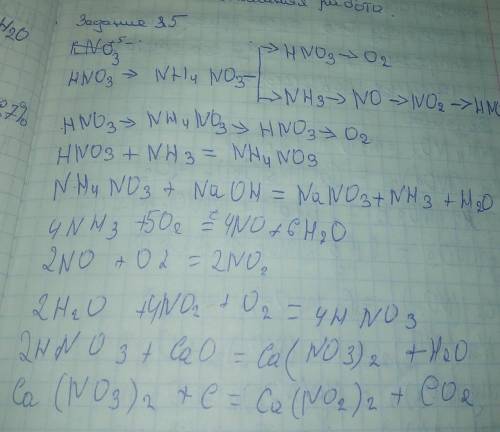 работа.
H2O
Задание 35
KNO3
HNO3 → NH4 NO3 → HNO3 → O2
→ NH3 → NO → NO2 → HNO
7%
HNO3 → NH4NO3 → HNO3 → O2
HNO3 + NH3 = NH4NO3
NH4 NO3 + NaOH = NaNO3 + NH3 + H2O
4NH3 + 5O2 = 4NO + 6H2O
2NO + O2 = 2NO2
2H2O + 4NO2 + O2 = 4HNO3
2HNO3 + CaO = Ca(NO3)2 + H2O
Ca(NO3)2 + C = Ca(NO2)2 + CO2